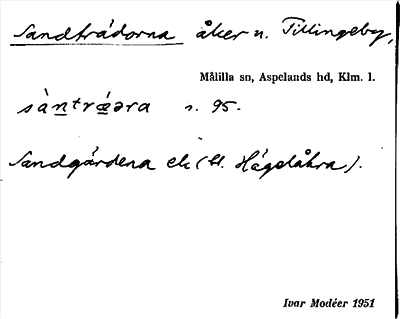 Sandträdorna åker n. Tillingeby,
Målilla sn, Aspelands hd, Klm. l.
sàntrǽəra s. 95.
Sandgärdena ek (bl. Högelåkra).
Ivar Modéer 1951